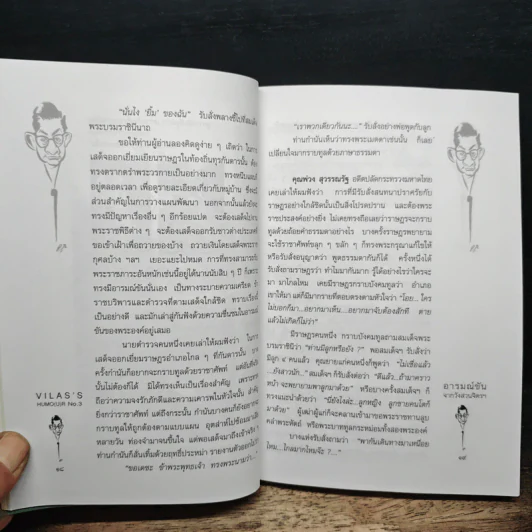 "นั่นไง 'ยิ้ม' ของฉัน" รับสั่งพลางชี้ไปที่สมเด็จ
พระบรมราชินีนาถ
ขอให้ท่านผู้อ่านลองคิดดูง่าย ๆ เถิดว่า ในการ
เสด็จออกเยี่ยมเยียนราษฎรในท้องถิ่นทุรกันดารนั้น ต้อง
ทรงตรากตรำพระวรกายเป็นอย่างมาก
อยู่ตลอดเวลา เพื่อดูรายละเอียดเกี่ยวกับหมู่บ้าน
ส่วนสำคัญในการวางแผนพัฒนา นอกจากนั้นแล้วยัง
ทรงมีปัญหาเรื่องอื่น ๆ อีกร้อยแปด จะต้องเสด็จไปงาน
พระราชพิธีต่าง ๆ จะต้องเสด็จออกรับชาวต่างประเทศ
ขอเข้าเฝ้าเพื่อถวายของบ้าง ถวายเงินโดยเสด็จพระราช
กุศลบ้าง ฯลฯ เยอะแยะไปหมด การที่ทรงสามารถรับ
พระราชภาระอันหนักเช่นนี้อยู่ได้นานนับสิบ ๆ ปี ก็เพราะ
ทรงมีอารมณ์ขันนั่นเอง เป็นทางระบายความเครียด ข้า
ราชบริพารและตำรวจที่ตามเสด็จใกล้ชิด ทราบเรื่องนี้
เป็นอย่างดี และมักเล่าสู่กันฟังด้วยความชื่นชมในอารมณ์
ขันของพระองค์อยู่เสมอ
นายตำรวจคนหนึ่งเคยเล่าให้ผมฟังว่า ในการ
เสด็จออกเยี่ยมราษฎรอำเภอไกล ๆ ที่กันดารนั้น บาง
ครั้งกำนันก็อยากจะกราบทูลด้วยราชาศัพท์
นั้นไม่ต้องก็ได้ มิได้ทรงถือเป็นเรื่องสำคัญ เพราะทรง
ถือว่าความจงรักภักดีและความเคารพในหัวใจนั้น สำคัญ
ยิ่งกว่าราชาศัพท์ แต่ถึงกระนั้น กำนันบางคนก็ยังอยากจะ
กราบทูลให้ถูกต้องตามแบบแผน อุตส่าห์ไปซ้อมมาเสีย
หลายวัน ท่องจำมาจนขึ้นใจ แต่พอเสด็จมาถึงเข้าจริง ๆ
ท่านกำนันก็สั่นเทิ้มด้วยฤทธิ์ประหม่า รายงานตัวออกไป
"ขอเดชะ ข้าพระพุทธเจ้า ทรงพระนามว่า..."
VILAS'S
HUMOUR No.3
๑๘
"เราพวกเดียวกันนะ..." รับสั่งอย่างพ่อพูดกับลูก
ท่านกำนันเห็นว่าทรงพระเมตตาเช่นนั้น ก็เลย
เปลี่ยนใจมากราบทูลด้วยภาษาธรรมดา
คุณพ่วง สุวรรณรัฐ อดีตปลัดกระทรวงมหาดไทย
เคยเล่าให้ผมฟังว่า การที่มีรับสั่งสนทนาปราศรัยกับ
ราษฎรอย่างใกล้ชิดนั้นเป็นสิ่งโปรดปราน และต้องพระ
ราชประสงค์อย่างยิ่ง ไม่เคยทรงถือเลยว่าราษฎรจะกราบ
ทูลด้วยถ้อยคำธรรมดาอย่างไร บางครั้งราษฎรพยายาม
จะใช้ราชาศัพท์ ขลุก ๆ ขลัก ๆ ก็ทรงพระกรุณาแก้ไขให้
หรือรับสั่งอนุญาตว่า พูดธรรมดากันก็ได้ ครั้งหนึ่งได้
รับสั่งถามราษฎรว่า ทำไมมากันมาก รู้ได้อย่างไรว่าใครจะ
มา มาไกลไหม เคยมีราษฎรกราบบังคมทูลว่า อำเภอ
เขาให้มา แต่ก็มีมากรายที่ตอบตรงตามหัวใจว่า "โอย... ใคร
ไม่บอกก็มา...อยากมาเห็น....อยากมาจับต้องสักที ตาย
แล้วไม่เกิดก็ไม่ว่า"
มีราษฎรคนหนึ่ง กราบบังคมทูลถามสมเด็จพระ
บรมราชินีว่า "ท่านมีลูกหรือยัง ?" พอสมเด็จฯ รับสั่งว่า
มีลูก ๔ คนแล้ว คุณยายแก่คนหนึ่งก็พูดว่า "ไม่เชื่อแล้ว
...ยังสาวนัก..." สมเด็จฯ ก็รับสั่งต่อว่า "ดีแล้ว...ถ้ามาคราว
หน้า จะพยายามพาลูกมาด้วย" หรือบางครั้งสมเด็จฯ ก็
ทรงแนะนำด้วยว่า "นี่ยังไงล่ะ...ลูกหญิง ลูกชายคนโตก็
มาด้วย" ผู้เฒ่าผู้แก่ก็จะคลานเข้ามาขอพระราชทานลูบ
คลำพระหัตถ์ หรือพระบาททูลกระหม่อมทั้งสองพระองค์
บางแห่งรับสั่งถามว่า "พากันเดินทางมาเหนื่อย
ไหม...ไกลมากไหมจ๊ะ ?..."
อารมณ์ขัน
จากวังสวนจิตรฯ
๑๙